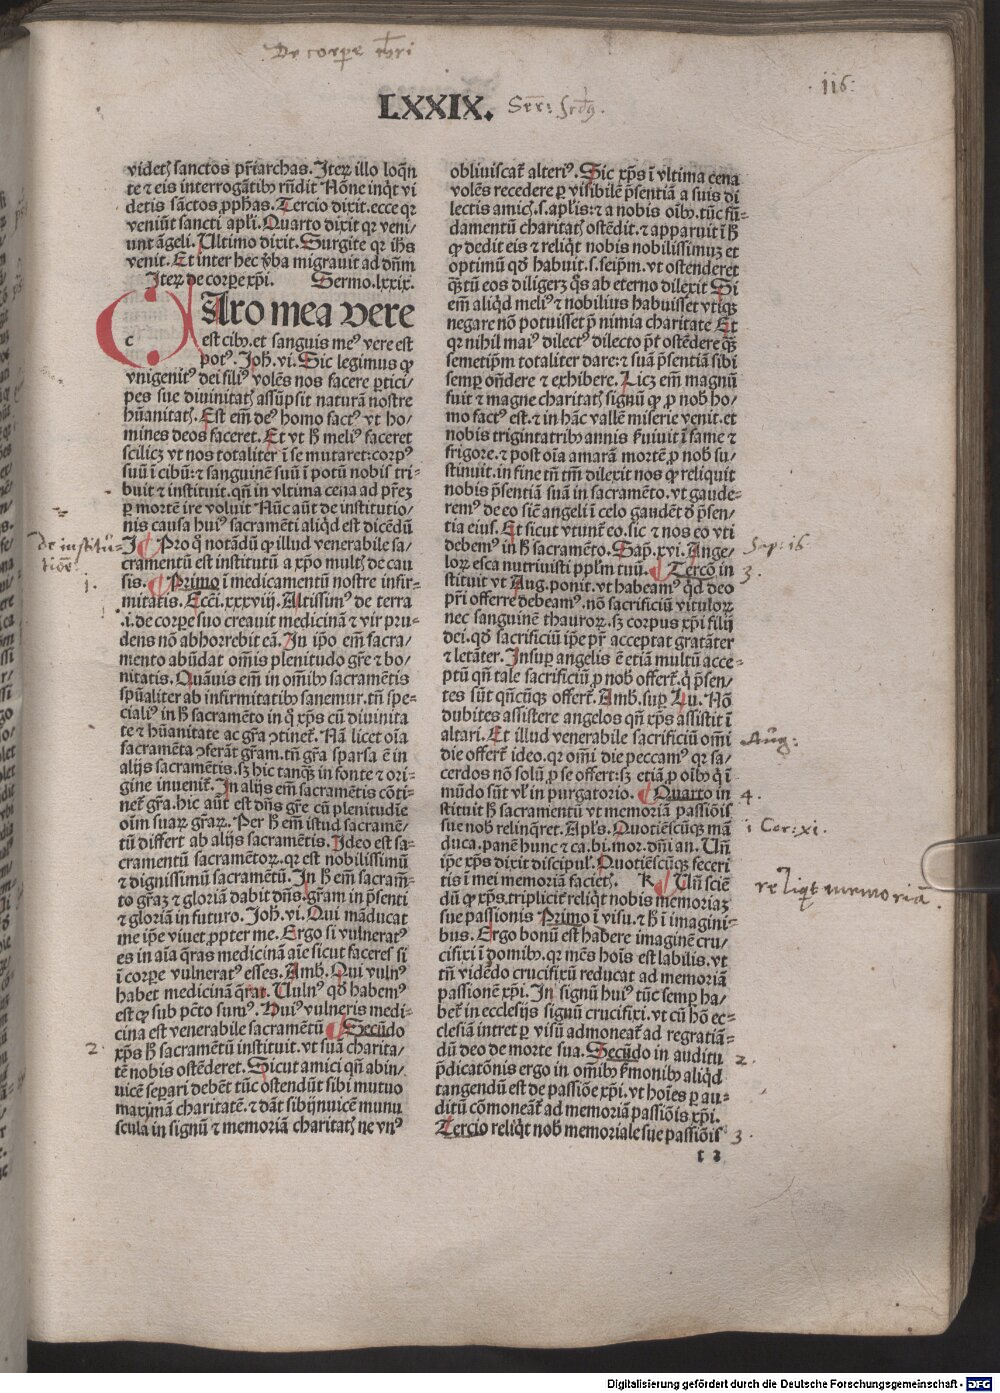 De corpe chri
LXXIX. Ser: scdꝰ.
116
videtꝭ sanctos pr̄iarchas. Iteꝝ illo loq̄n
te ⁊ eis interrogātibꝰ rn̄dit Nōne inq̇t vi
detis sāctos ꝓphas. Tercio dixit. ecce qꝛ
veniūt sancti apl̄i. Quarto dixit qꝛ veni/
unt āgeli. Ultimo dixit. Surgite qꝛ ihs̄
venit. Et inter hec v̄ba migrauit ad dn̄m
Iteꝝ de corpe xp̄i. Sermo. lxxix.
CAro mea vere
c
est cibꝰ. et sanguis meꝰ vere est
potꝰ. Joh̄. vi. Sic legimus ꝙ
vnigenitꝰ dei filiꝰ volēs nos facere ꝑtici/
pes sue diuinitatꝭ assūpsit naturā nostre
hūanitatꝭ. Est em̄ deꝰ homo factꝰ vt ho/
mines deos faceret. Et vt h̄ meliꝰ faceret
scilicꝫ vt nos totaliter ī se mutaret: corpꝰ
suū ī cibū: ⁊ sanguinē suū ī potū nobis tri-
buit ⁊ instituit. qn̄ in vltima cena ad pr̄eꝫ
ꝑ mortē ire voluit Nūc aūt de institutio/
nis causa huiꝰ sacramēti aliq̇d est dicēdū
de institu-
tiōe:
I ¶ Pro q̊ notādū ꝙ illud venerabile sa/
cramentū est institutū a xp̄o multꝭ de cau
sis. ¶ Primo ī medicamentū nostre infir-
1.
mitatis. Ecc̄i. xxxviij. Altissimꝰ de terra
.i. de corpe suo creauit medicinā ⁊ vir pru-
dens nō abhorrebit eā. In ip̄o em̄ sacra/
mento abūdat om̄is plenitudo gr̄e ⁊ bo/
nitatis. Quāuis em̄ in om̄ibꝰ sacramētis
sp̄ualiter ab infirmitatibꝰ sanemur. tn̄ spe-
cialiꝰ in h̄ sacramēto in q̊ xp̄s cū diuinita
te ⁊ hūanitate ac gr̄a ꝯtinet̄. Nā licet oīa
sacramēta ꝯferāt gr̄am. tn̄ gr̄a sparsa ē in
alijs sacramētis. sꝫ hic tanq̄ꝫ in fonte ⁊ ori-
gine inuenit̄. In alijs em̄ sacramētis cōti-
net̄ gr̄a. hic aūt est dn̄s gr̄e cū plenitudīe
oīm suaꝝ gr̄aꝝ. Per h̄ em̄ istud sacramē/
tū differt ab alijs sacramētis. Ideo est sa-
cramentū sacramētoꝝ. qꝛ est nobilissimū
⁊ dignissimū sacramētū. In h̄ em̄ sacram̄-
to gr̄aꝫ ⁊ gloriā dabit dn̄s. gr̄am in p̄senti
⁊ gloriā in futuro. Joh̄. vi. Qui māducat
me ip̄e viuet ꝓpter me. Ergo si vulneratꝰ
es in aīa q̄ras medicinā aīe sicut faceres si
ī corpe vulneratꝰ esses. Amb̄. Qui vulnꝰ
habet medicinā q̄rat. Uulnꝰ qd̄ habemꝰ
est ꝙ sub pcto sumꝰ. Huiꝰ vulneris medi-
cina est venerabile sacramētū ¶ Secūdo
2.
xp̄s h̄ sacramētū instituit. vt suā charita/
tē nobis ostēderet. Sicut amici qn̄ abin/
uicē separi debēt tūc ostendūt sibi mutuo
maximā charitatē. ⁊ dāt sibijnuicē munu
scula in signū ⁊ memoriā charitatꝭ ne vnꝰ
obliuiscat̄ alteriꝰ. Sic xp̄s ī vltima cena
volēs recedere ꝑ visibilē p̄sentiā a suis di
lectis amicꝭ. s. apl̄is: ⁊ a nobis oībꝰ. tūc fū-
damentū charitatꝭ ostēdit. ⁊ apparuit ī h̄
ꝙ dedit eis ⁊ reliq̇t nobis nobilissimuꝫ et
optimū qd̄ habuit. s. seip̄m. vt ostenderet
q̄ꝫtū eos diligerꝫ q̊s ab eterno dilexit Si
em̄ aliq̇d meliꝰ ⁊ nobilius habuisset vtiqꝫ
negare nō potuisset p̄ nimia charitate Et
qꝛ nihil maiꝰ dilectꝰ dilecto pōt ostēdere q̄ꝫ
semetip̄m totaliter dare: ⁊ suā p̄sentiā sibi
semꝑ on̄dere ⁊ exhibere. Licꝫ em̄ magnū
fuit ⁊ magne charitatꝭ signū ꝙ ꝓ nob̄ ho/
mo factꝰ est. ⁊ in hāc vallē miserie venit. et
nobis trigintatribꝰ annis s̄uiuit ī fame ⁊
frigore. ⁊ post oīa amarā mortē ꝓ nob̄ su/
stinuit. in fine tn̄ tm̄ dilexit nos ꝙ reliquit
nobis p̄sentiā suā in sacramēto. vt gaude-
remꝰ de eo siē angeli ī celo gaudēt d̄ p̄sen/
tia eius. Et sicut vtunt̄ eo. sic ⁊ nos eo vti
debemꝰ in h̄ sacramēto. Sap̄. xvi. Ange/
Sap: 16
loꝝ esca nutriuisti pplm̄ tuū. ¶ Terco in
3.
stituit vt Aug. ponit. vt habeamꝰ qd̄ deo
pr̄i offerre debeamꝰ. nō sacrificiū vituloꝝ
nec sanguinē thauroꝝ. sꝫ corpus xp̄i filij
dei. qd̄ sacrificiū ip̄e pr̄ acceptat gratāter
⁊ letāter. Insuꝑ angelis ē etiā multū acce-
ptū qn̄ tale sacrificiū ꝓ nob̄ offert̄. q̇ p̄sen/
tes sūt qn̄cūqꝫ offert̄. Amb̄. suꝑ Lu. Nō
dubites assistere angelos qn̄ xp̄s assistit ī
altari. Et illud venerabile sacrificiū om̄i
Aug:
die offert̄ ideo. qꝛ om̄i die peccamꝰ qꝛ sa/
cerdos nō solū ꝓ se offert: sꝫ etiā ꝓ oībꝰ q̇ ī
mūdo sūt vl̄ in purgatorio. ¶ Quarto in
4.
stituit h̄ sacramētū vt memoriā passiōis
sue nob̄ relinq̄ret. Apl̄s. Quotiēscūqꝫ mā
i Cor: xi.
duca. panē hunc ⁊ ca. bi. mor. dn̄i an. Un̄
ip̄e xp̄s dixit discipul̄. Quotiēscūqꝫ feceri
tis ī mei memoriā facietꝭ. K ¶ Un̄ sciē
reliq̇t memoriā.
dū ꝙ xp̄s triplicit̄ reliq̇t nobis memoriaꝫ
sue passionis Primo ī visu. ⁊ h̄ ī imagini-
bus. Ergo bonū est habere imaginē cru/
cifixi ī domibꝰ. qꝛ mēs hoīs est labilis. vt
tn̄ vidēdo crucifixū reducat ad memoriā
passionē xp̄i. In signū huiꝰ tūc semꝑ ha/
bet̄ in ecclesijs signū crucifixi. vt cū hō ec-
clesiā intret ꝑ visū admoneat̄ ad regratiā-
dū deo de morte sua. Secūdo in auditu
2.
p̄dicatōnis ergo in om̄ibꝰ s̄monibꝰ aliq̇d
tangendū est de passiōe xp̄i. vt hoīes ꝑ au-
ditū cōmoneāt̄ ad memoriā passiōis xp̄i.
Tercio reliq̇t nob̄ memoriale sue passiōis
3.
t 2
Digitalisierung gefördert durch die Deutsche Forschungsgemeinschaft - DFG